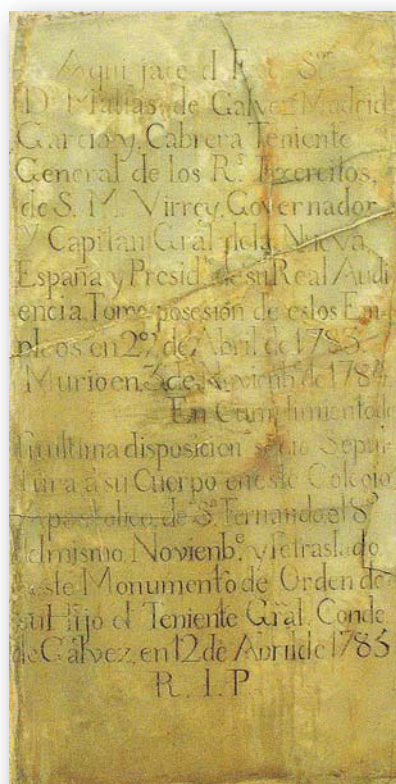 Aqui jace el Exc.mo S.or
D.n Matias de Galvez Madrid
Garcia y Cabrera Teniente
General de los R.s Exercitos,
de S. M. Virrey, Governador
y Capitan Gräl dela Nueva
España y Presid.te de su Real Audi
encia. Tomo posesión de estos Em-
pleos en 29, de Abril de 1783.
Murio en 3 de Novienb.e de 1784.
En Cumplimiento de
su ultima disposicion se dio Sepul-
tura a su Cuerpo en este Colegio
Apostolico, de S.n Fernando, el 8
del mismo, Novienb.e y se traslado
a este Monumento de Orden de
su Hijo el Teniente Gräl. Conde
de Gálvez, en 12 de Abril de 1785
R. I. P